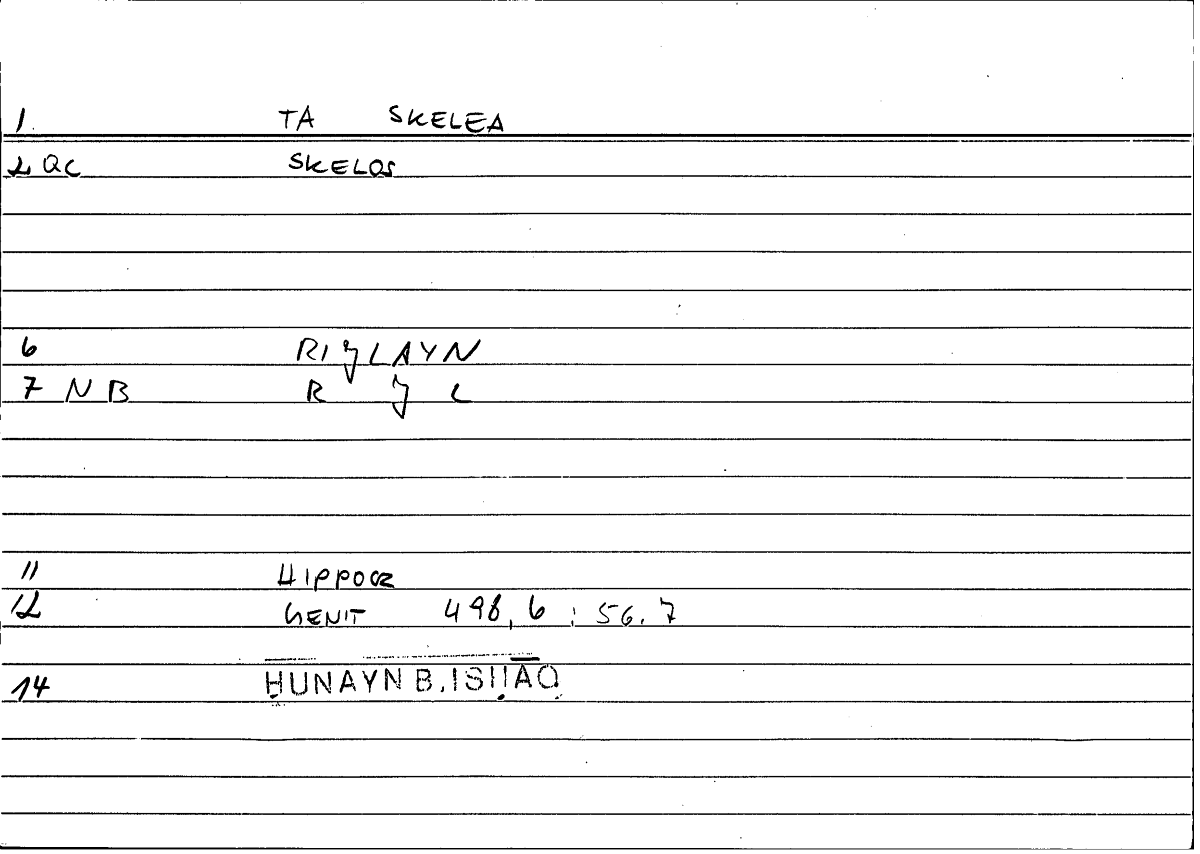 1. TA SKELEA
2 QC SKELOS
6 RIǦLAYN
7 NB R Ǧ L
11 HIPPOCR
12 GENIT 498, 6 ; 56. 7
14 ḤUNAYN B. ISḤĀQ